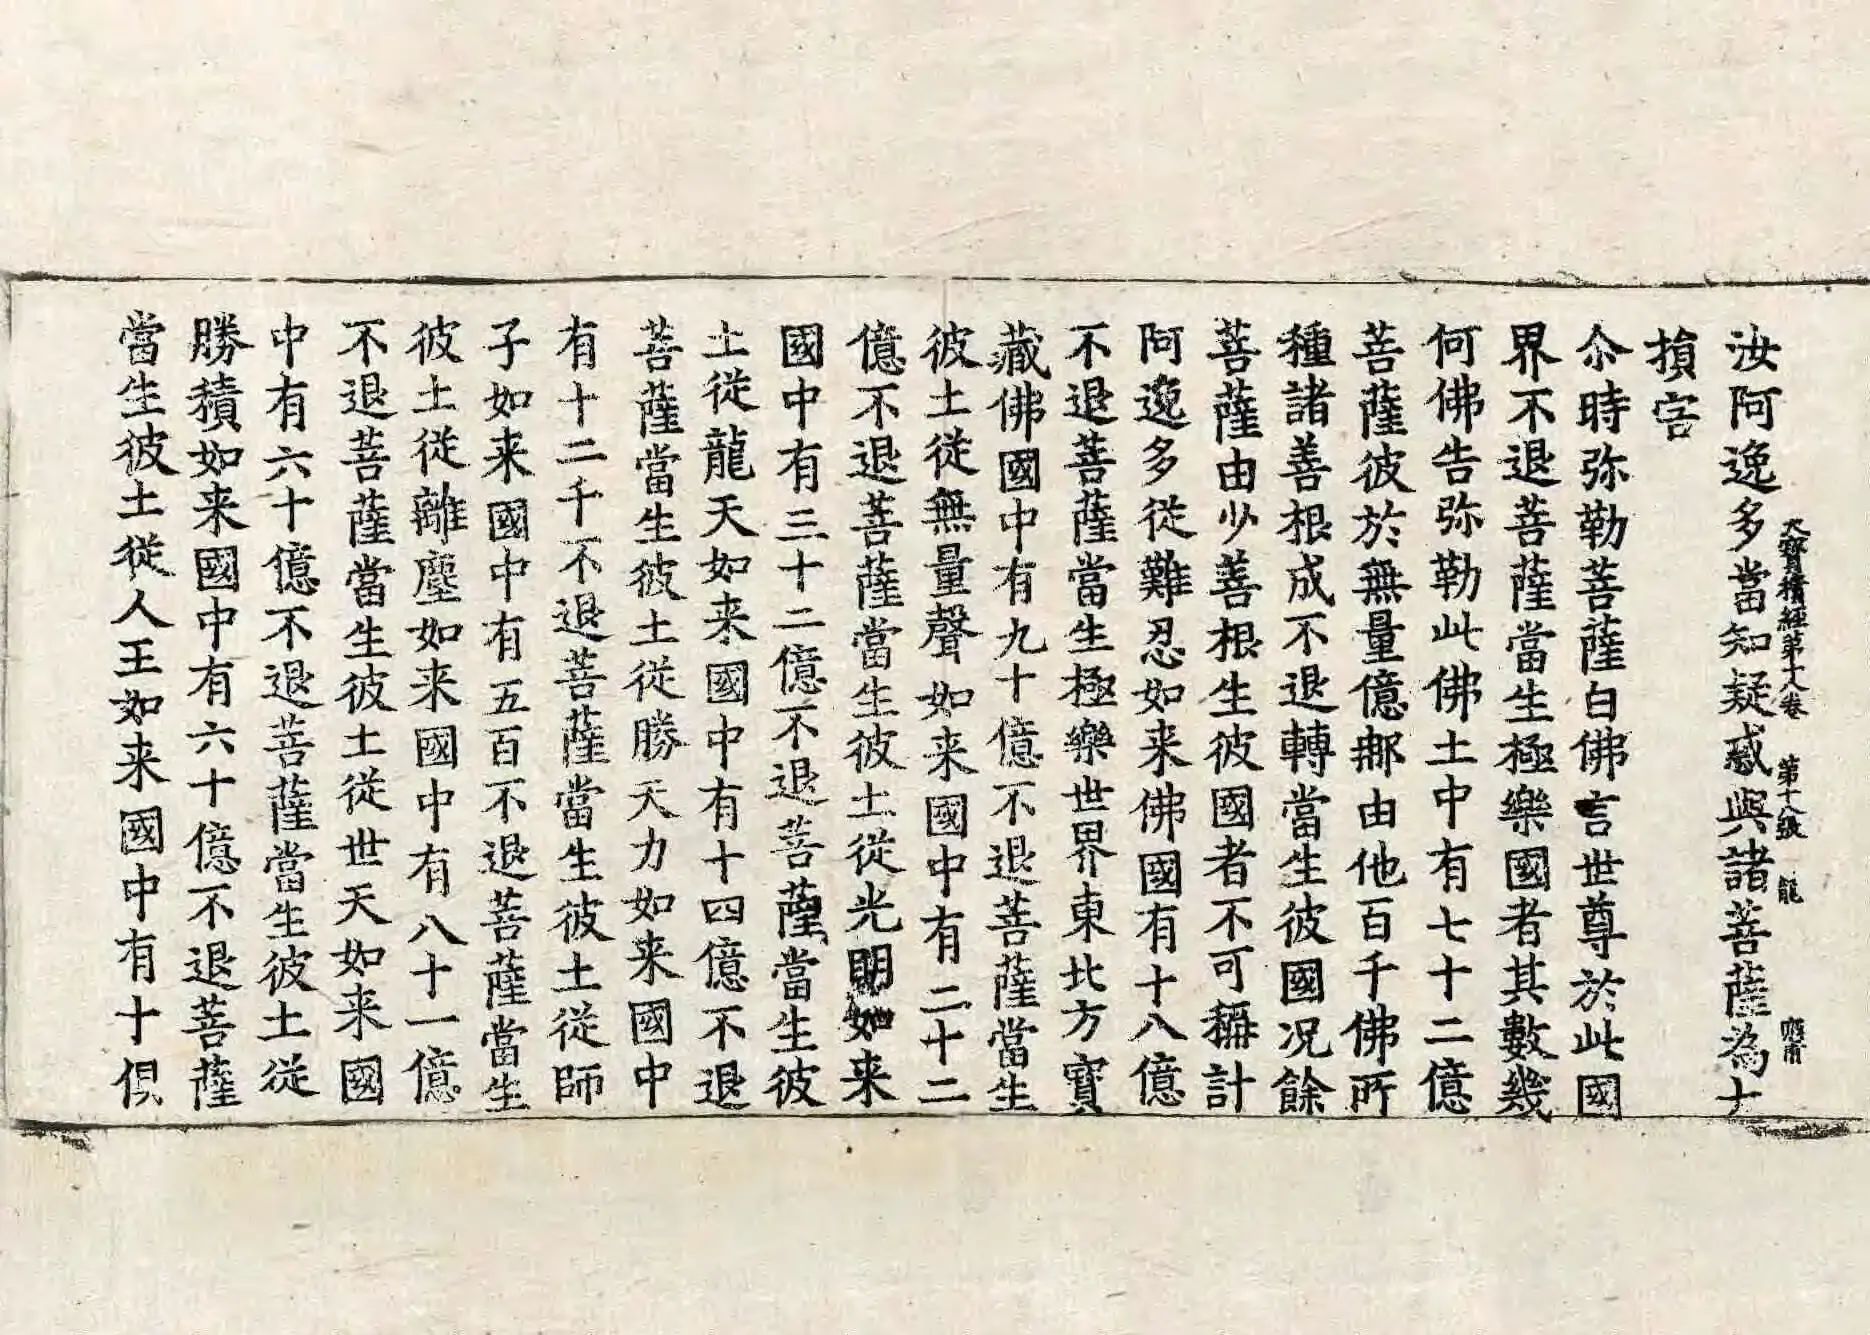 大寶積經第十八卷 第十八張 龍
汝阿逸多當知疑惑與諸菩薩為大
損害
尒時弥勒菩薩白佛言世尊於此國
界不退菩薩當生極樂國者其數幾
何佛告弥勒此佛土中有七十二億
菩薩彼於無量億那由他百千佛所
種諸善根成不退轉當生彼國况餘
菩薩由少善根生彼國者不可稱計
阿逸多從難忍如来佛國有十八億
不退菩薩當生極樂世界東北方寶
藏佛國中有九十億不退菩薩當生
彼土從無量聲如来國中有二十二
億不退菩薩當生彼土從光明如来
國中有三十二億不退菩薩當生彼
土從龍天如来國中有十四億不退
菩薩當生彼土從勝天力如来國中
有十二千不退菩薩當生彼土從師
子如来國中有五百不退菩薩當生
彼土從離塵如来國中有八十一億
不退菩薩當生彼土從世天如来國
中有六十億不退菩薩當生彼土從
勝積如来國中有六十億不退菩薩
當生彼土從人王如来國中有十俱